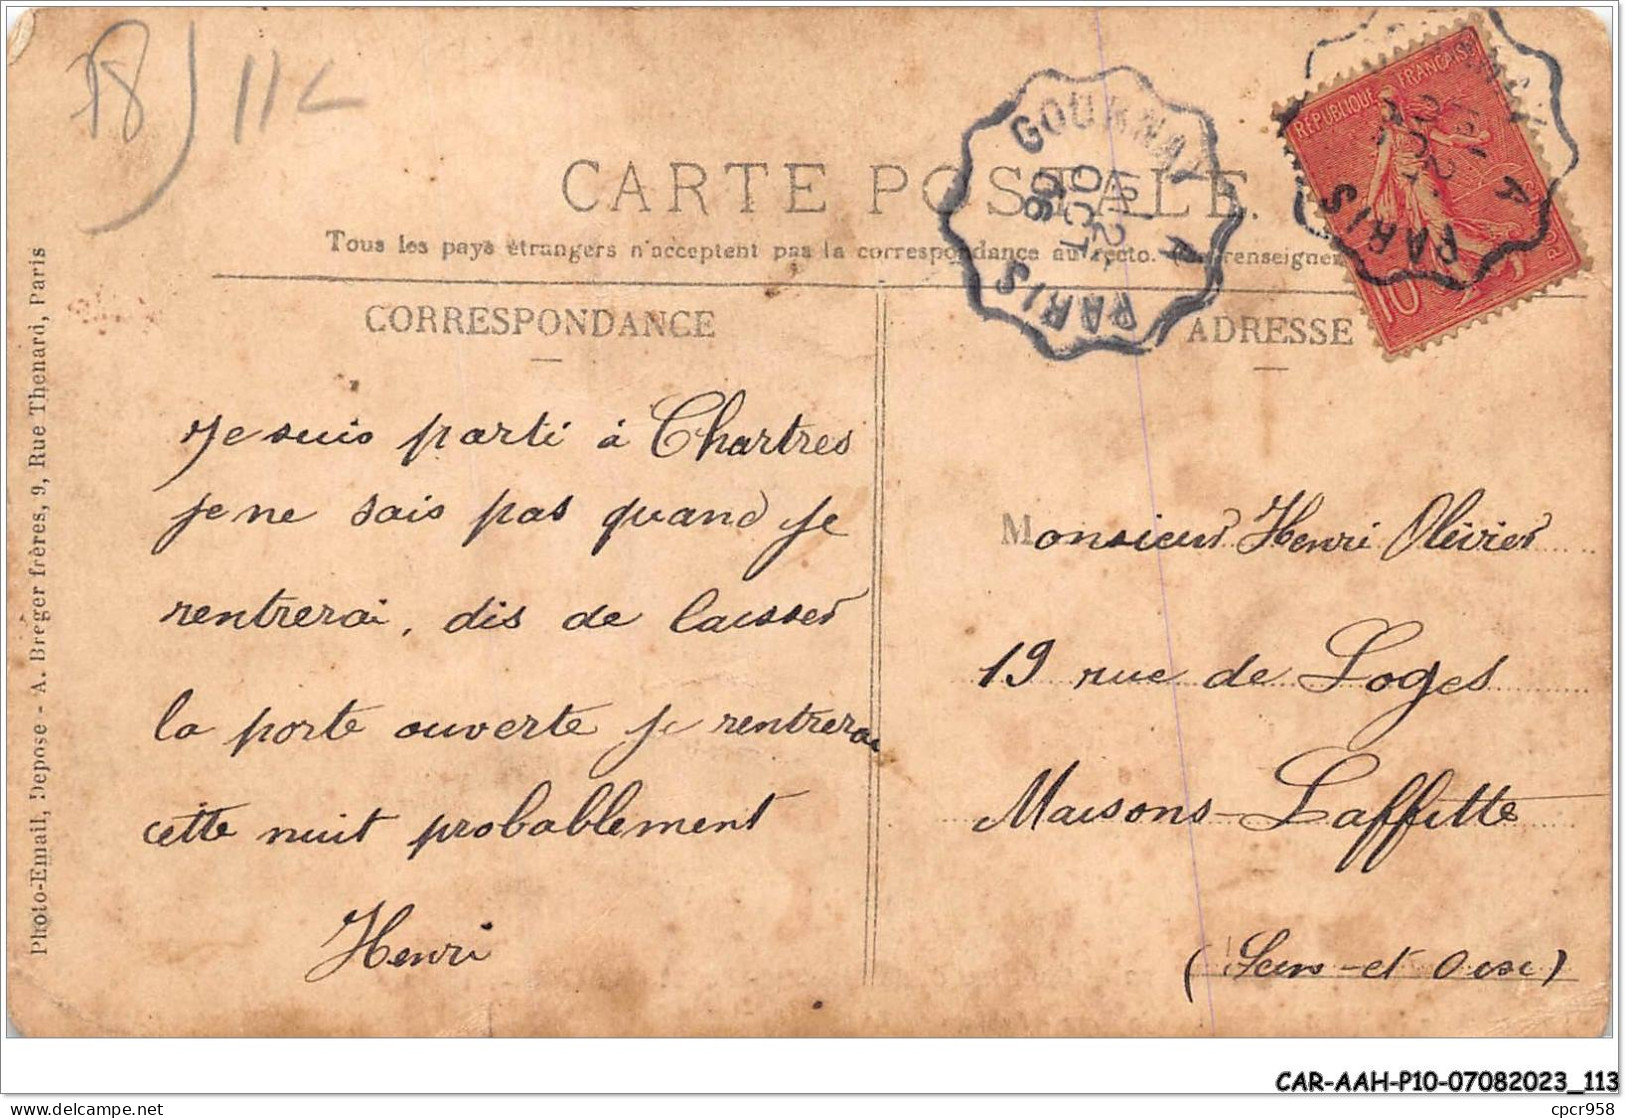 18) 11L
CARTE POSTALE.
Tous les pays étrangers n'acceptent pas la correspondance au recto.
CORRESPONDANCE
ADRESSE
GOURNAY A PARIS
OCT
06
RÉPUBLIQUE FRANÇAISE
10
A PARIS
Je suis parti à Chartres
je ne sais pas quand je
rentrerai, dis de laisser
la porte ouverte je rentrerai
cette nuit probablement
Henri
Monsieur Henri Olivier
19 rue de Loges
Maisons-Laffitte
(Seine-et Oise)
Photo-Email, Depose - A. Breger frères, 9, Rue Thenard, Paris
CAR-AAH-P10-07082023_113
delcampe.net
cpcr958